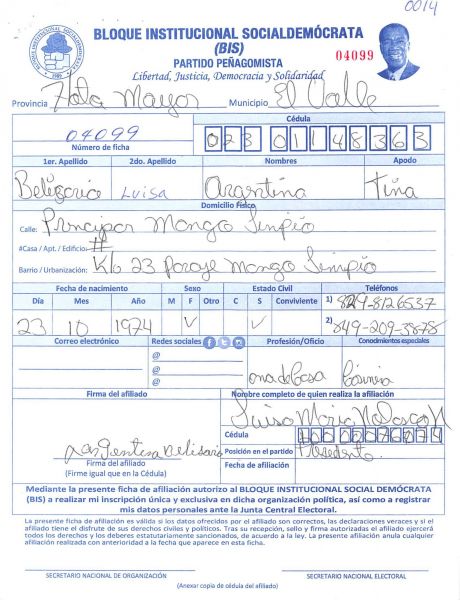 0014
BLOQUE INSTITUCIONAL SOCIALDEMÓCRATA
(BIS)
PARTIDO PEÑAGOMISTA
04099
Libertad, Justicia, Democracia y Solidaridad
Provincia Hato Mayor Municipio El Valle
Cédula
04099 023 0114836 3
Número de ficha
1er. Apellido 2do. Apellido Nombres Apodo
Belisario Luisa Argentina Tina
Domicilio Físico
Calle: Principar Mango Limpio
#Casa / Apt. / Edificio: #
Barrio / Urbanización: K/o 23 Paraje Mango Limpio
Fecha de nacimiento Sexo Estado Civil Teléfonos
Día Mes Año M F Otro C S Conviviente 1) 829-8126537
23 10 1974 V V 2) 849-209-3878
Correo electrónico Redes sociales Profesión/Oficio Conocimientos especiales
@
@
@ ama de Casa Cosina
Firma del afiliado Nombre completo de quien realiza la afiliación
Luisa Maria
Cédula
Argentina Belisario Posición en el partido
Firma del afiliado Fecha de afiliación
(Firme igual que en la Cédula)
Mediante la presente ficha de afiliación autorizo al BLOQUE INSTITUCIONAL SOCIAL DEMÓCRATA
(BIS) a realizar mi inscripción única y exclusiva en dicha organización política, así como a registrar
mis datos personales ante la Junta Central Electoral.
La presente ficha de afiliación es válida si los datos ofrecidos por el afiliado son correctos, las declaraciones veraces y si el
afiliado tiene el disfrute de sus derechos civiles y políticos. Tras su recepción, sello y firma autorizadas el afiliado ejercerá
todos los derechos y los deberes estatutariamente sancionados, de acuerdo a la ley. La presente afiliación anula cualquier
afiliación realizada con anterioridad a la fecha que aparece en esta ficha.
SECRETARIO NACIONAL DE ORGANIZACIÓN SECRETARIO NACIONAL ELECTORAL
(Anexar copia de cédula del afiliado)